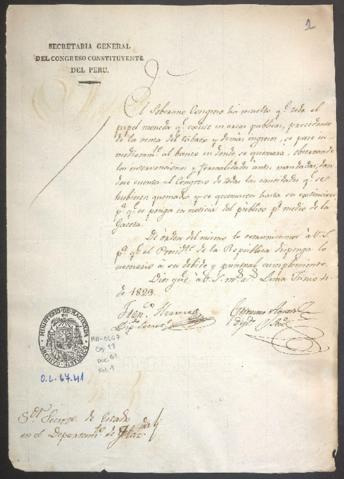 2
SECRETARIA GENERAL
DEL CONGRESO CONSTITUYENTE
DEL PERU.
El Soberano Congreso ha resuelto q.e todo el
papel moneda q.e existe en arcas publicas, procedente
de la renta del tabaco y demás ingresos, se pase in-
mediatam.te al banco en donde se quemará, observando
las intervenciones y formalidades antes mandadas, dan-
dose cuenta al Congreso de todas las cantidades q.e se
hubiesen quemado y se quemaren hasta su extincion
p.a q.e se ponga en noticia del publico p.r medio de la
Gaceta.
De orden del mismo lo comunicamos á V.S.
p.a q.e el Presid.te de la Republica disponga lo
necesario á su debido y puntual cumplimiento.
Dios gue. á V.S. m.s a.s Lima Junio
de 1823.
MINISTERIO DE HACIENDA
O.L. 67-41
S.or Secret.o de Estado
en el Departam.to de Haz.da